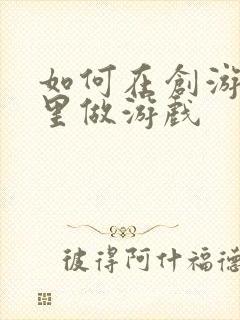 如何在創游
里做游戏
彼得阿什福德